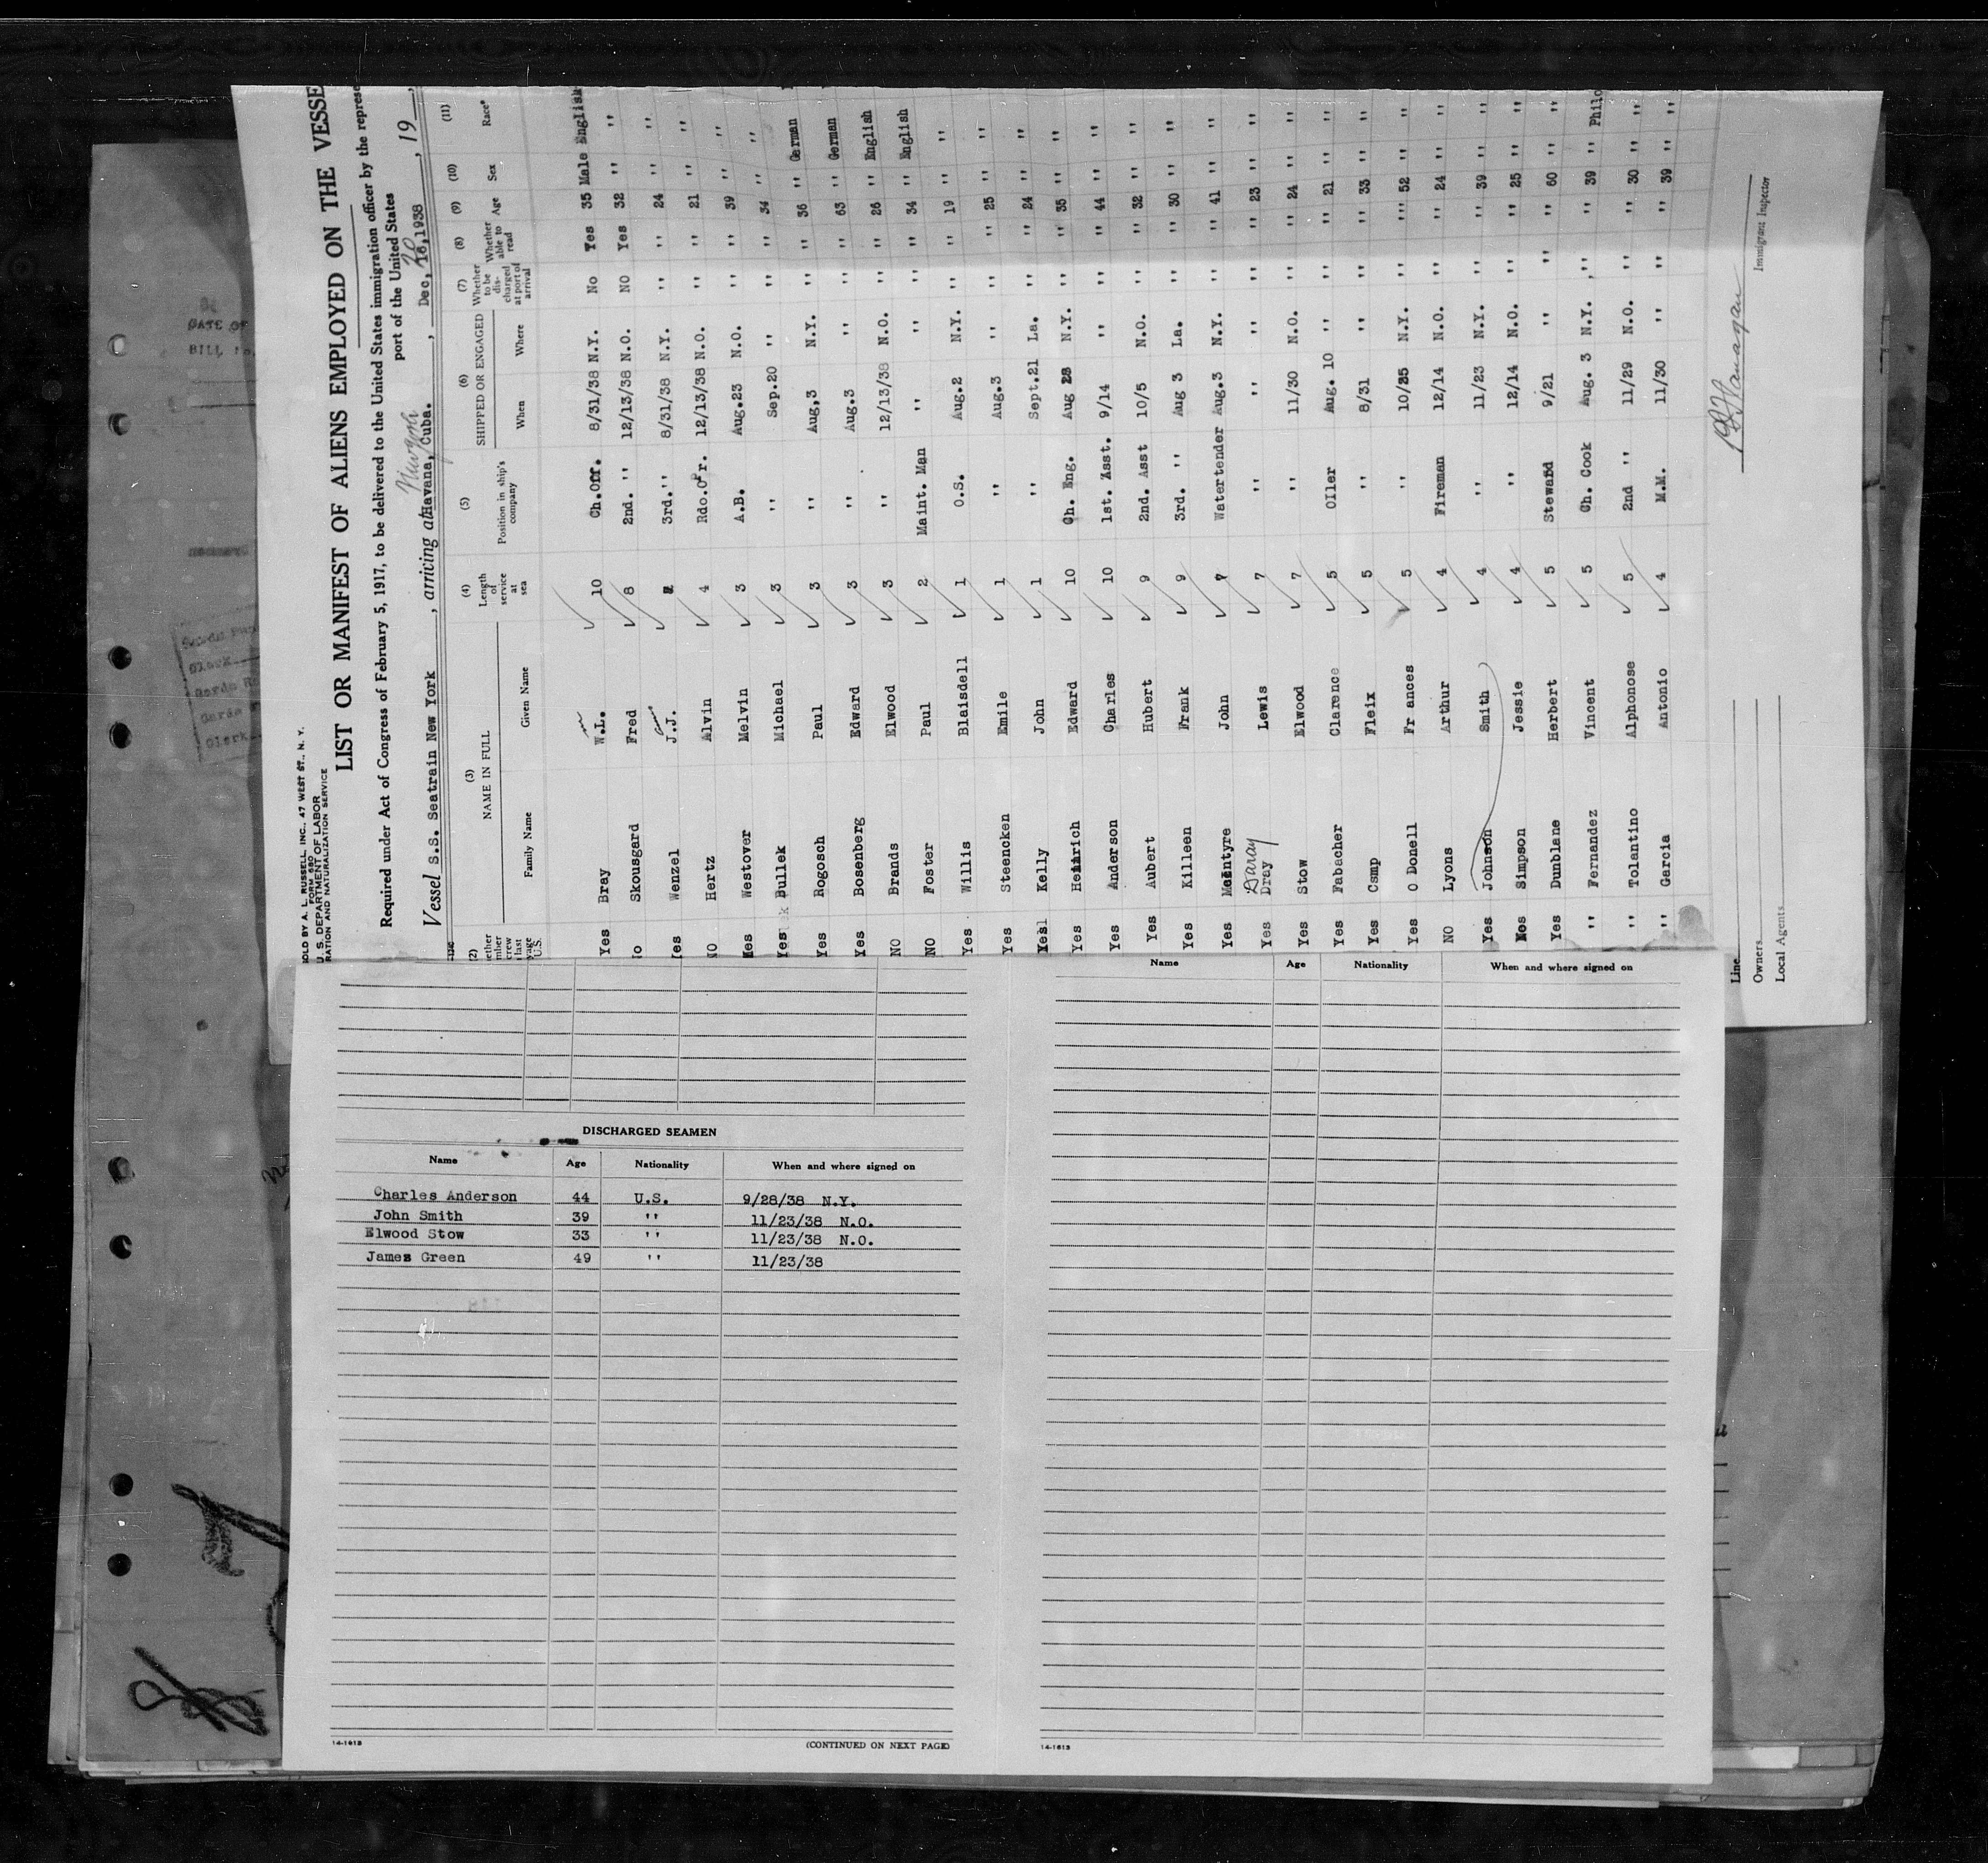 SOLD BY A. L. RUSSELL, INC., 47 WEST ST., N. Y.
FORM 680
U. S. DEPARTMENT OF LABOR
RATION AND NATURALIZATION SERVICE
LIST OR MANIFEST OF ALIENS EMPLOYED ON THE VESSE
Required under Act of Congress of February 5, 1917, to be delivered to the United States immigration officer by the represe
port of the United States
Vessel S.S. Seatrain New York, arriving at Havana, Cuba., Dec, 16,1938, 19
(2) (3) (4) (5) (6) (7) (8) (9) (10) (11)
NAME IN FULL
SHIPPED OR ENGAGED
Family Name Given Name Length of service at sea Position in ship's company When Where Whether to be discharged at port of arrival Whether able to read Age Sex Race*
Yes Bray W.L. 10 Ch.Off. 8/31/38 N.Y. No Yes 35 Male English
No Skousgard Fred 8 2nd. '' 12/13/38 N.O. NO Yes 32 '' ''
Yes Wenzel J.J. 3rd. '' 8/31/38 N.Y. '' '' 24 '' ''
NO Hertz Alvin 4 Rdo.Opr. 12/13/38 N.O. '' '' 21 '' ''
Yes Westover Melvin 3 A.B. Aug.23 N.O. '' '' 39 '' ''
Yes Bullek Michael 3 '' Sep.20 '' '' '' 34 '' ''
Yes Rogosch Paul 3 '' Aug,3 N.Y. '' '' 36 '' German
Yes Bosenberg Edward 3 '' Aug.3 '' '' '' 63 '' German
NO Brands Elwood 3 '' 12/13/38 N.O. '' '' 26 '' English
NO Foster Paul 2 Maint. Man '' '' '' 34 '' English
Yes Willis Blaisdell 1 O.S. Aug.2 N.Y. '' '' 19 '' ''
Yes Steencken Emile 1 '' Aug.3 '' '' '' 25 '' ''
Yes Kelly John 1 '' Sept.21 La. '' '' 24 '' ''
Yes Heinrich Edward 10 Ch. Eng. Aug 23 N.Y. '' '' 35 '' ''
Yes Anderson Charles 10 1st. Asst. 9/14 '' '' '' 44 '' ''
Yes Aubert Hubert 9 2nd. Asst 10/5 N.O. '' '' 32 '' ''
Yes Killeen Frank 9 3rd. '' Aug 3 La. '' '' 30 '' ''
Yes Maintyre John 7 Watertender Aug.3 N.Y. '' '' 41 '' ''
Daray
Yes Dray Lewis 7 '' '' '' '' '' 23 '' ''
Yes Stow Elwood 7 '' 11/30 N.O. '' '' 24 '' ''
Yes Fabacher Clarence 5 OIler Aug. 10 '' '' '' 21 '' ''
Yes Csmp Fleix 5 '' 8/31 '' '' '' 33 '' ''
Yes O Donell Fr ances 5 '' 10/25 N.Y. '' '' 52 '' ''
NO Lyons Arthur 4 Fireman 12/14 N.O. '' '' 24 '' ''
Yes Johnson Smith 4 '' 11/23 N.Y. '' '' 39 '' ''
Yes Simpson Jessie 4 '' 12/14 N.O. '' '' 25 '' ''
Yes Dunblane Herbert 5 Steward 9/21 '' '' '' 60 '' ''
'' Fernandez Vincent 5 Ch. Cook Aug. 3 N.Y. '' '' 39 '' Philo
'' Tolantino Alphonose 5 2nd '' 11/29 N.O. '' '' 30 '' ''
'' Garcia Antonio 4 M.M. 11/30 '' '' '' 39 '' ''
Immigrant Inspector
Line
Owners
Local Agents
DISCHARGED SEAMEN
Name Age Nationality When and where signed on
Charles Anderson 44 U.S. 9/28/38 N.Y.
John Smith 39 '' 11/23/38 N.O.
Elwood Stow 33 '' 11/23/38 N.O.
James Green 49 '' 11/23/38
14-1613 (CONTINUED ON NEXT PAGE)
Name Age Nationality When and where signed on
14-1613
DATE OF
BILL
Clerk